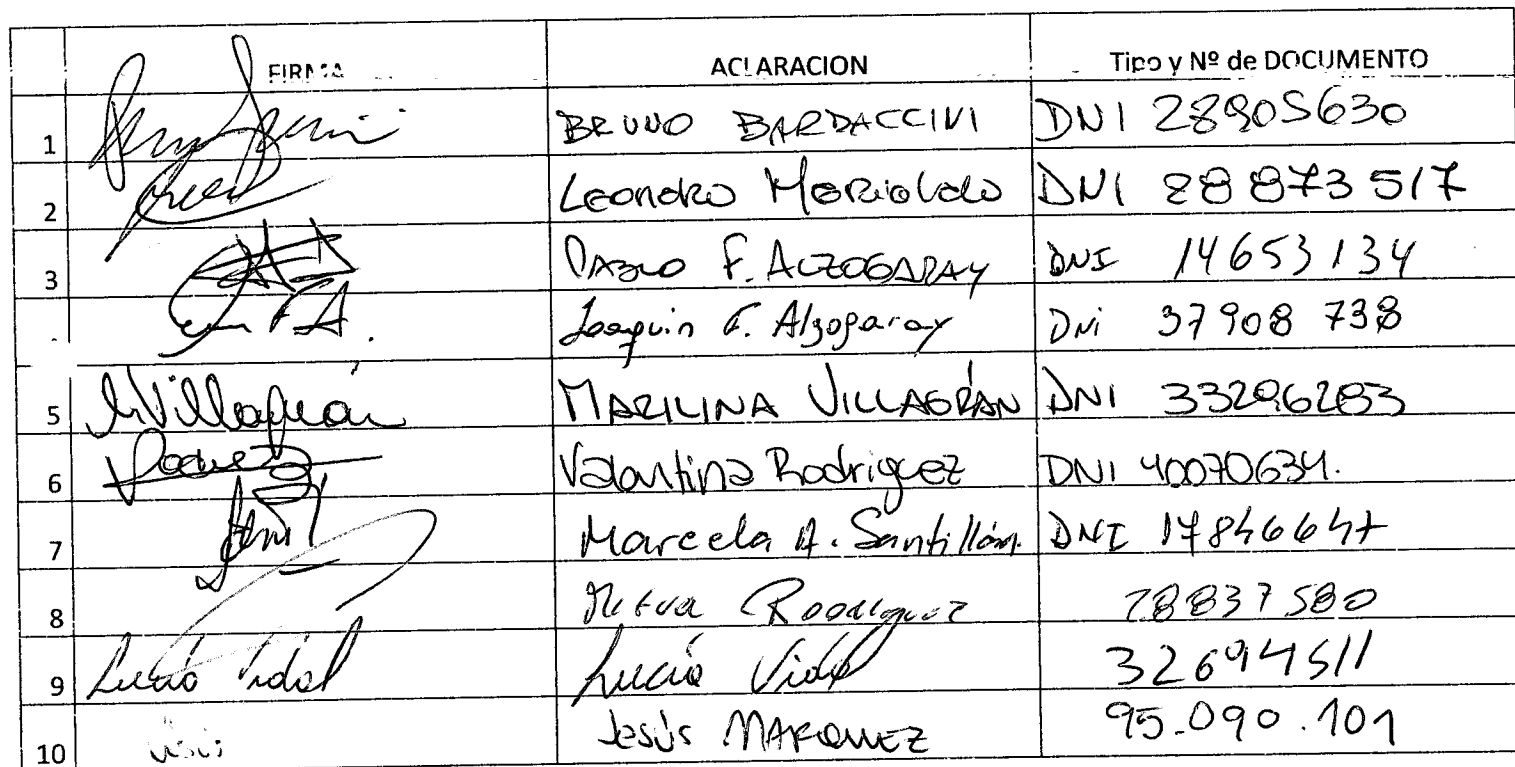 FIRMA ACLARACION Tipo y Nº de DOCUMENTO
1 BRUNO BARDACCINI DNI 28905630
2 Leandro DNI 28873517
3 PABLO F. ALZOGARAY DNI 14653134
Joaquin F. Alzogaray DNi 37908 738
5 MVillagrán MARILINA VILLAGRÁN DNI 33296283
6 Valentina Rodriguez DNI 40070634.
7 Marcela A. Santillán. DNI 17846647
8 Rodriguez 28837580
9 Lucía Vidal Lucía Vidal 32694511
10 Jesús Jesús MARQUEZ 95.090.101